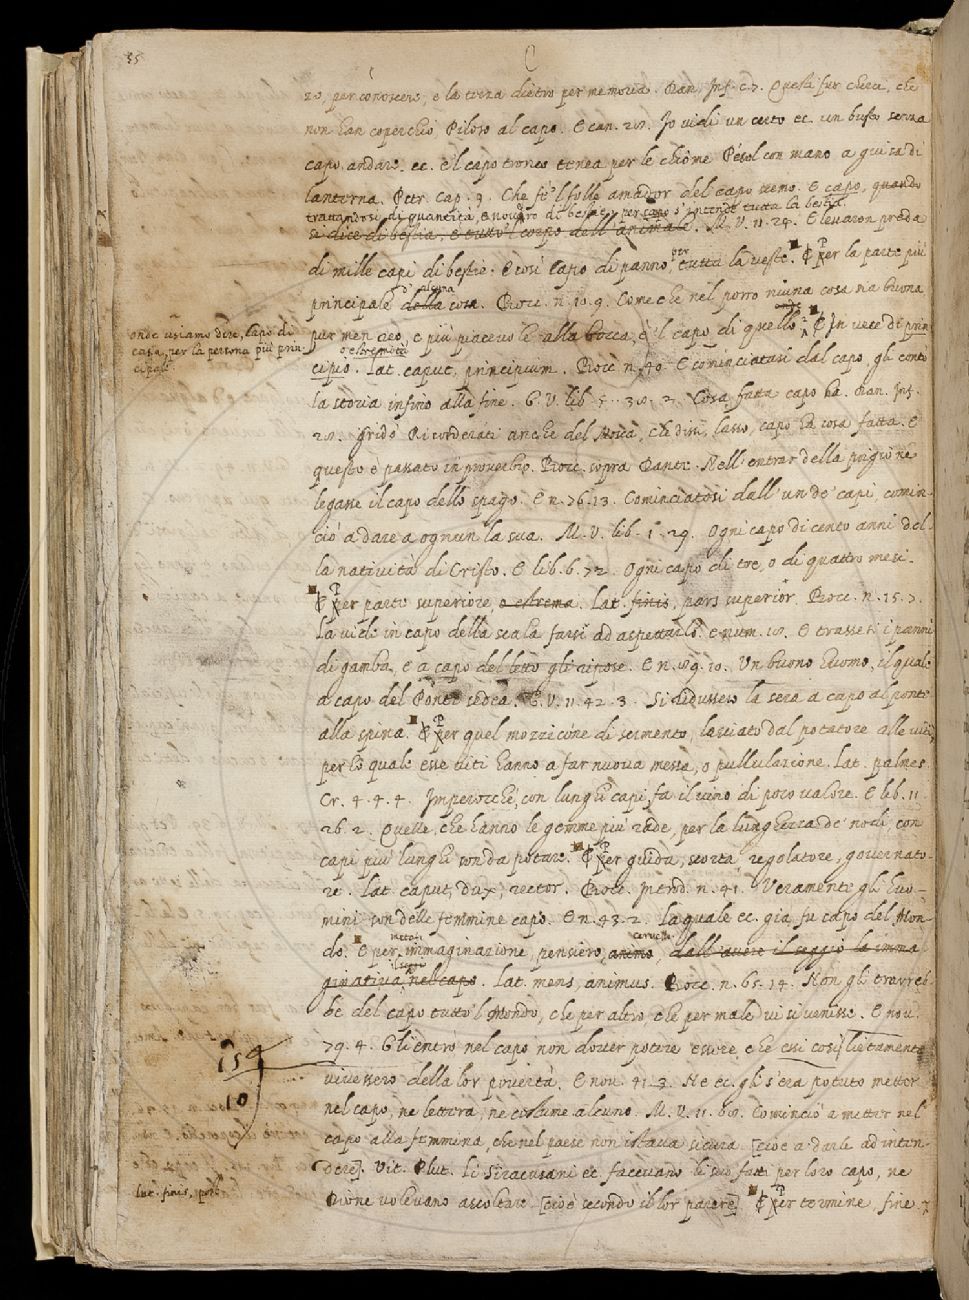 35
C
ro, per conoscere, e la torna dietro per memoria. Dan. Inf. c. 7. Questi fur cherci, che
non han coperchio Piloso al capo. E can. 28. Io vidi un certo ec. un busto senza
capo andare. ec. E'l capo tronco tenea per le chiome Pésol con mano a guisa di
lanterna. Petr. Cap. 9. Che fe 'l folle amador del capo scemo. E capo, quando
trattandosi di quantità, e novero di bestie, per capo s'intende tutta la bestia
si dice di bestia, è tutto 'l corpo dell'animale. M. V. 11. 24. E levaron preda
di mille capi di bestie. E così Capo di panno, per tutta la veste. E Per la parte più
principale d'alcuna della cosa. Bocc. n. 10. 9. Come che nel porro niuna cosa sia buona
onde usiamo dire, Capo di
casa, per la persona più prin-
cipale
per men reo, e più piacevole alla bocca, è 'l capo di quello. E In vece di prin
o estremità
cipio. Lat. caput, principium. Bocc. n. 40. E cominciatasi dal capo gli contò
la storia infino alla fine. G. V. lib. 5. 38. 2. Cosa fatta capo ha. Dan. Inf.
28. Gridò Ricorderati anche del Mosca, che dissi, lasso, capo ha cosa fatta. E
questo è passato in proverbio. Bocc. sopra Dante. Nell'entrar della prigione
legasse il capo dello spago. E n. 76. 13. Cominciatosi dall'un de' capi, comin-
ciò a dare a ognun la sua. M. V. lib. 1. 29. Ogni capo di cento anni del-
la natività di Cristo. E lib. 6. 72. Ogni capo di tre, o di quattro mesi.
E Per parte superiore, o estrema. Lat. finis, pars superior. Bocc. n. 15. 7.
La vide in capo della scala farsi ad aspettarlo. E num. 18. E trassesi i panni
di gamba, e a capo del letto gli ripose. E n. 89. 10. Un buono huomo, il quale
a capo del Ponte sedea. G. V. 11. 42. 3. Si ridussero la sera a capo al ponte
alla spina. E Per quel mozzicone di sermento, lasciato dal potatore alle viti,
per lo quale esse viti hanno a far nuova messa, o pullulazione. Lat. palmes.
Cr. 4. 4. 4. Imperocchè, con lunghi capi, fa il vino di poco valore. E lib. 11.
26. 2. Quelle, che hanno le gemme più rade, per la lunghezza de' nodi, con
capi più lunghi son da potare. E Per guida, scorta regolatore, governato-
re. Lat. caput, dux, rector. Bocc. Introd. n. 41. Veramente gli huo-
mini son delle femmine capo. E n. 43. 2. La quale ec. già fu capo del Mon-
do. E per immaginazione, pensiero, animo, cervello dall'avere il seggio la imma
ginativa nel capo. Lat. mens, animus. Bocc. n. 65. 14. Non gli trarreb-
be del capo tutto 'l Mondo, che per altro, che per male vi si venisse. E nov.
79. 4. Gli entrò nel capo non dover potere essere, che essi così lietamente
154
10
vivessero della lor povertà. E nov. 41. 3. Nè ec. gli s'era potuto metter
nel capo, nè lettera, nè costume alcuno. M. V. 11. 60. Cominciò a metter nel
capo alla femmina, che nel paese non istava sicura. [cioè a darle ad inten-
dere]. Vit. Plut. Li Siracusani ec. facevano li suo' fatti per loro capo, nè
lat. finis,
Dione volevano ascoltare. [cioè secondo il lor parere] E Per termine, fine.